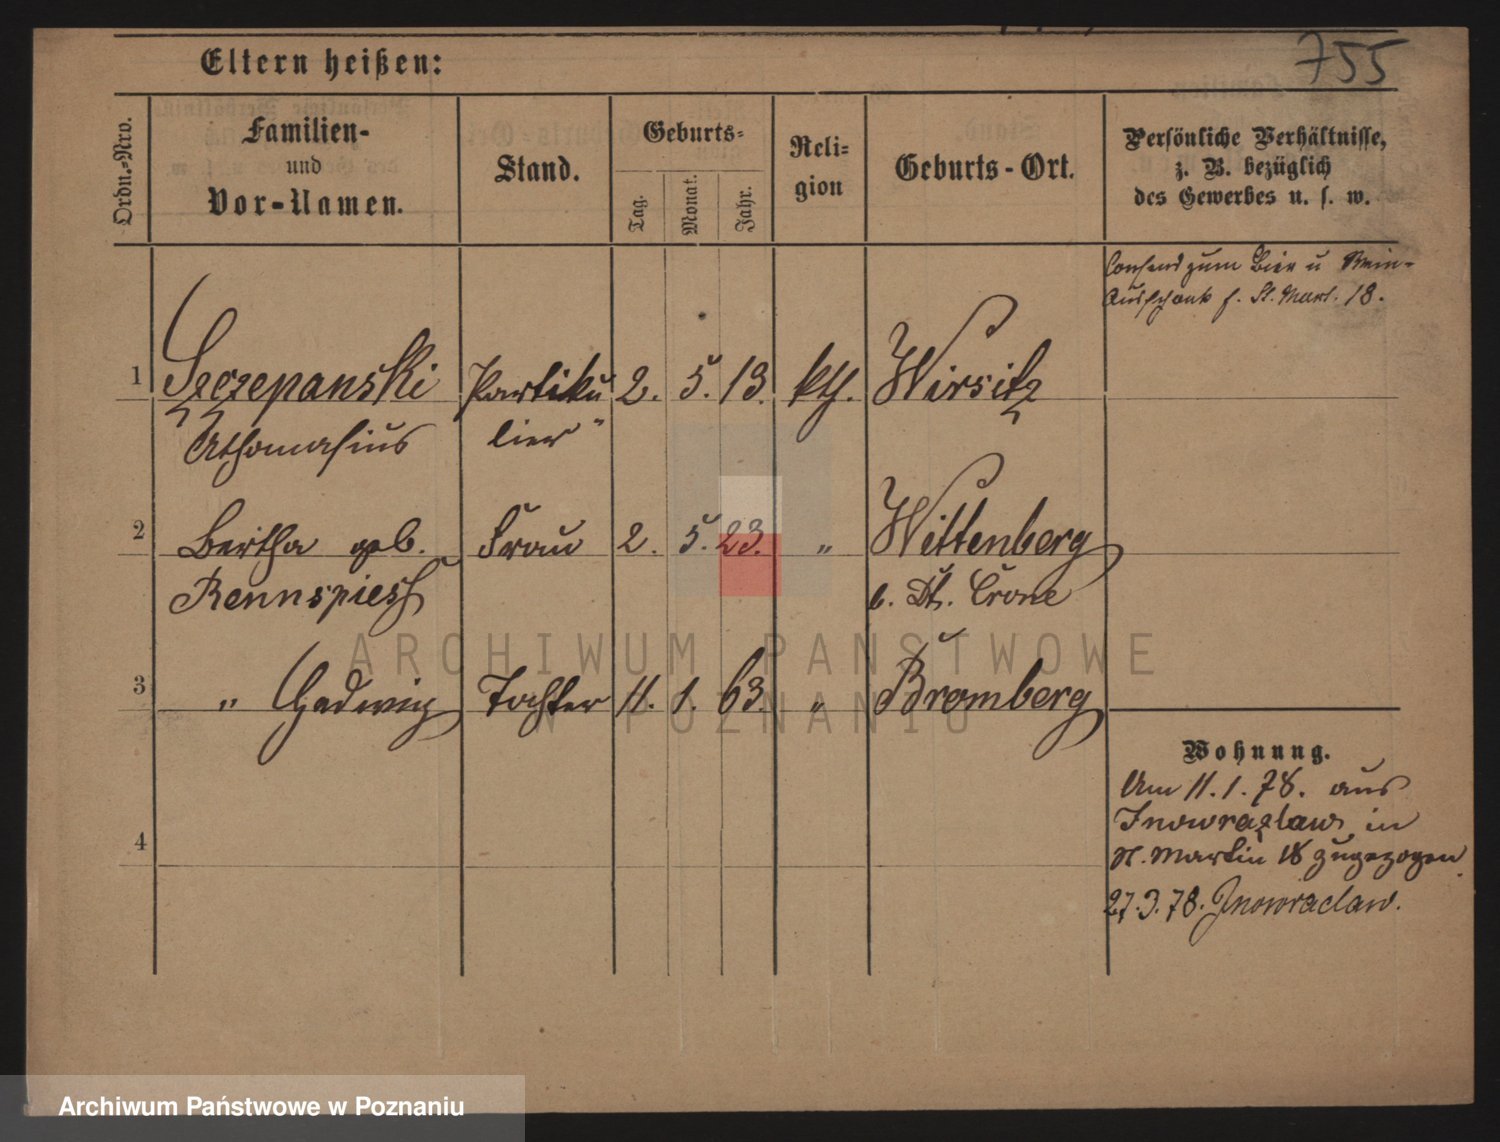 755
Eltern heißen:
Ordn.-Nro.
Familien-
und
Vor-Namen.
Stand.
Geburts-
Tag.
Monat.
Jahr.
Reli-
gion
Geburts-Ort.
Persönliche Verhältnisse,
z. B. bezüglich
des Gewerbes u. s. w.
Consens zum Bier u Wein-
Ausschank f. St. Mart. 18.
1 Szczepanski Partiku 2. 5. 13. kth. Wirsitz
Athanasius lier
2 Bertha geb. Frau 2. 5. 23. " Wittenberg
Rennspiess b. Dt. Crone
3 " Hedwig Tochter 11. 1. 63. " Bromberg
Wohnung.
Am 11. 1. 78. aus
Inowrazlaw in
St. Martin 18 zugezogen
4
27. 3. 78. Inowraclaw.
ARCHIWUM PAŃSTWOWE
W POZNANIU
Archiwum Państwowe w Poznaniu